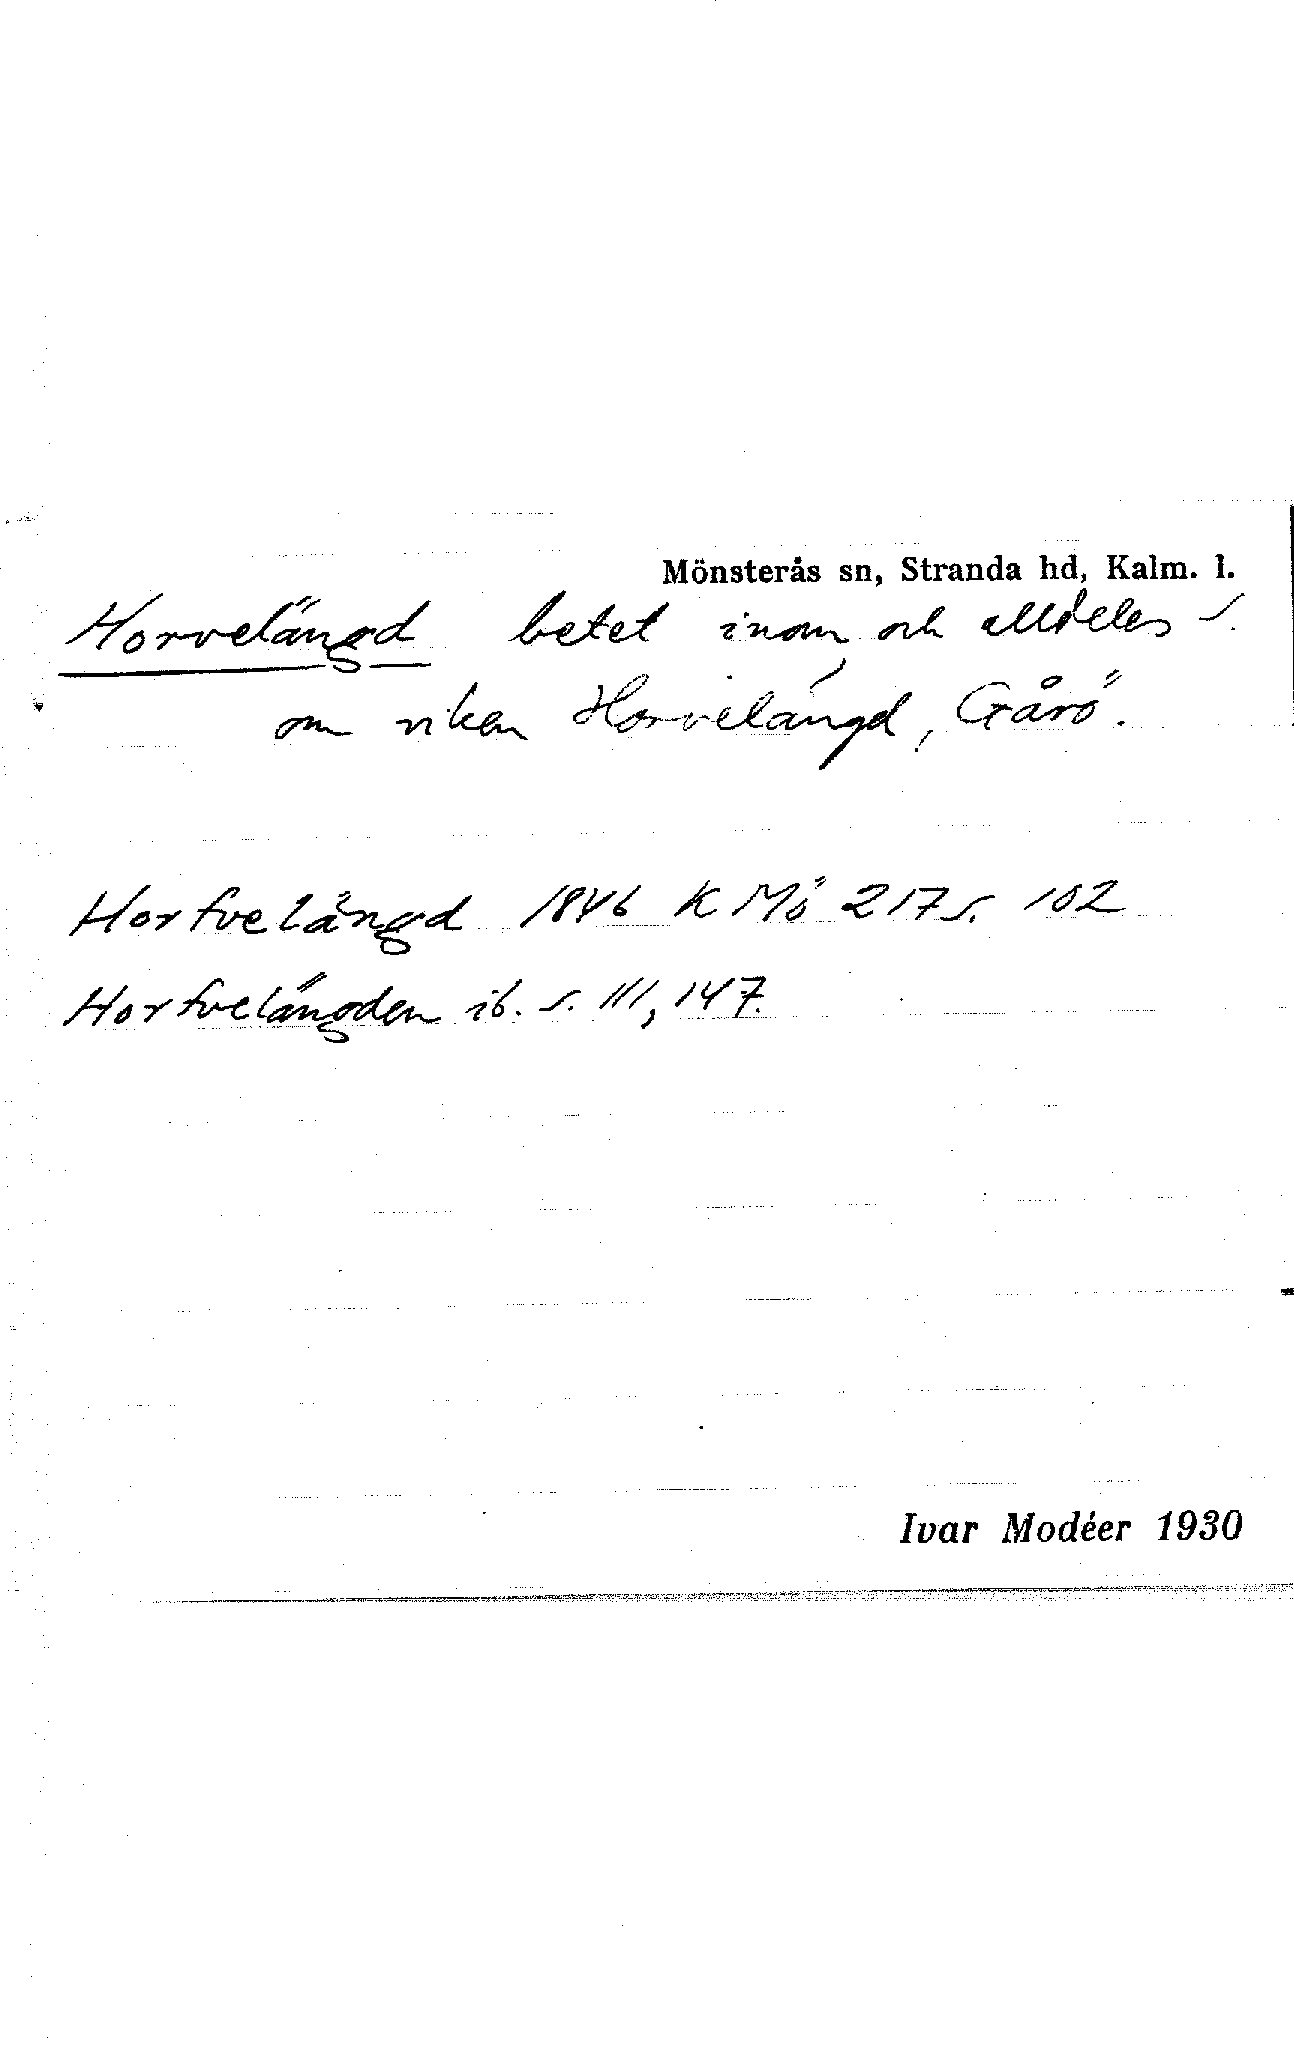 Mönsterås sn, Stranda hd, Kalm. l.
Horvelängd betet inom och alldeles s.
om viken Horvelängd, Gårö.
Horfvelängd 1846 K Mö 217 s. 102
Horfvelängden ib. s. 111, 147.
Ivar Modéer 1930